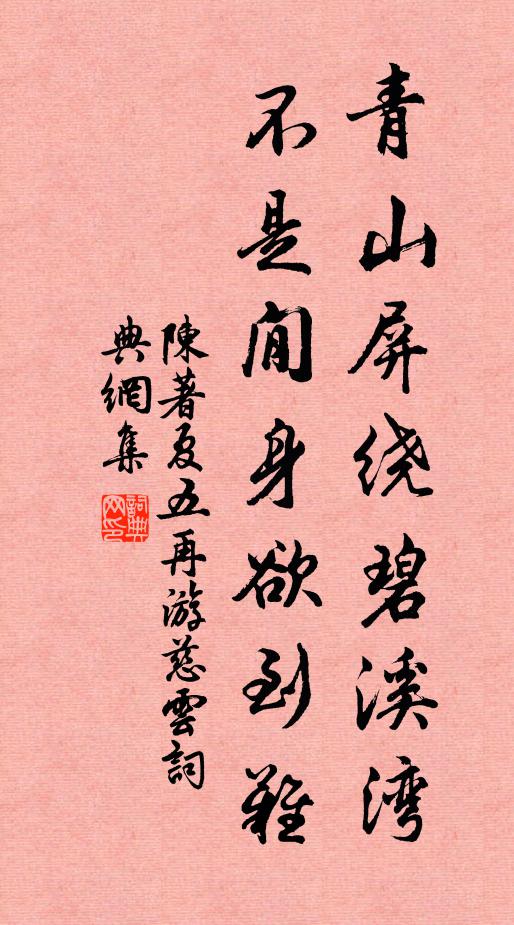 青山屏绕碧溪湾
不是閒身欲到難
陳著夏五再游慈雲詞
典網集
詞典網印